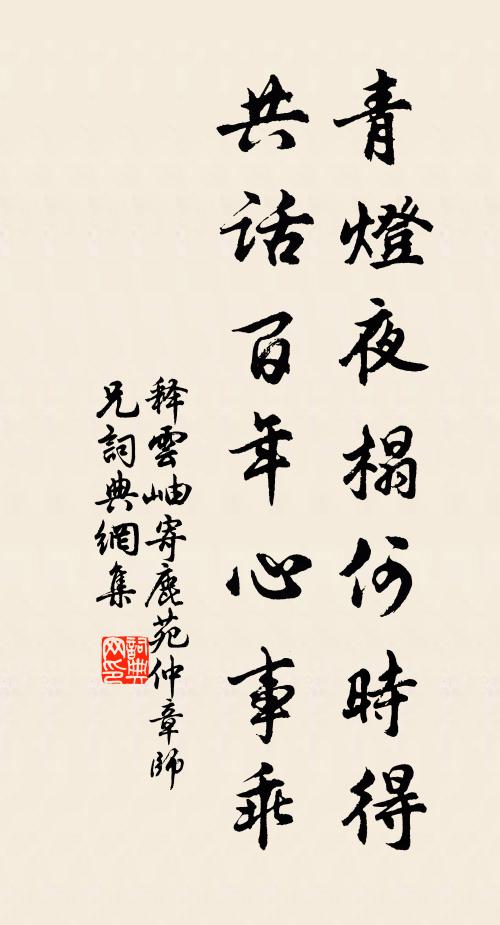 青燈夜榻何時得
共话百年心事乖
释雲岫寄鹿苑仲章師
兄詞典網集
詞典網印